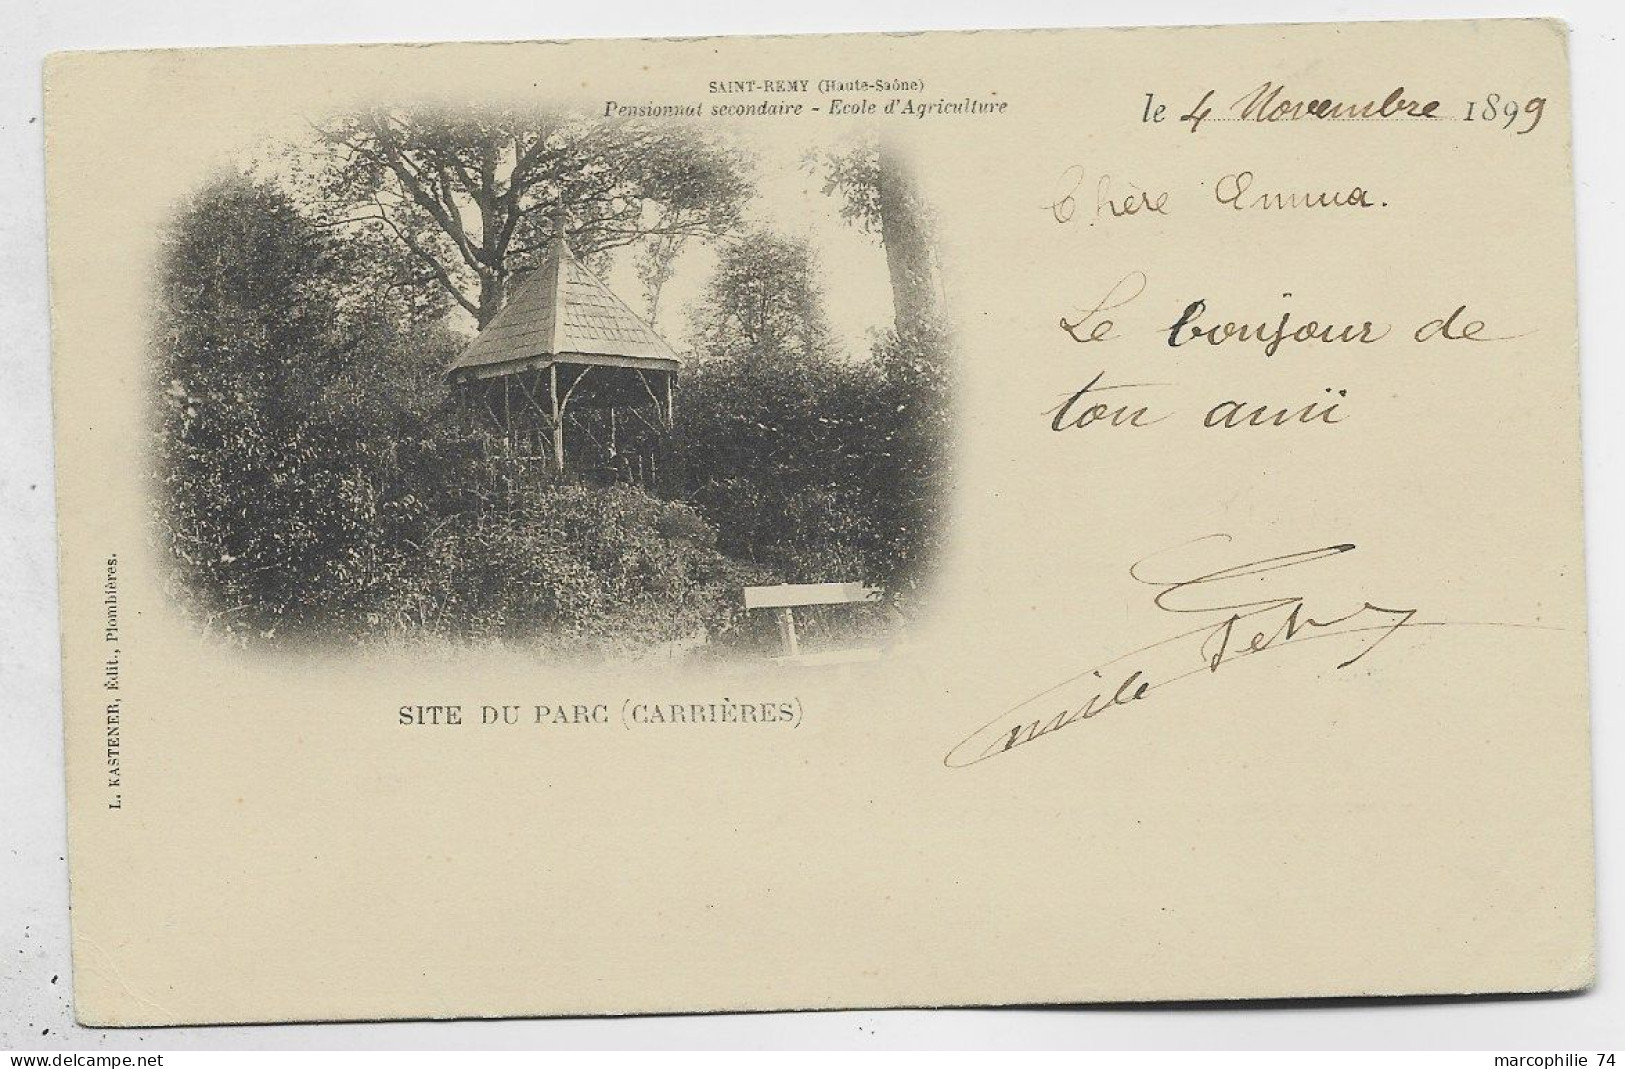 SAINT-REMY (Haute-Saône)
Pensionnat secondaire - Ecole d'Agriculture
le 4 Novembre 1899
Chère Emma.
Le bonjour de
ton amii
SITE DU PARC (CARRIÈRES)
L. KASTENER, Édit., Plombières.
delcampe.net
marcophilie 74